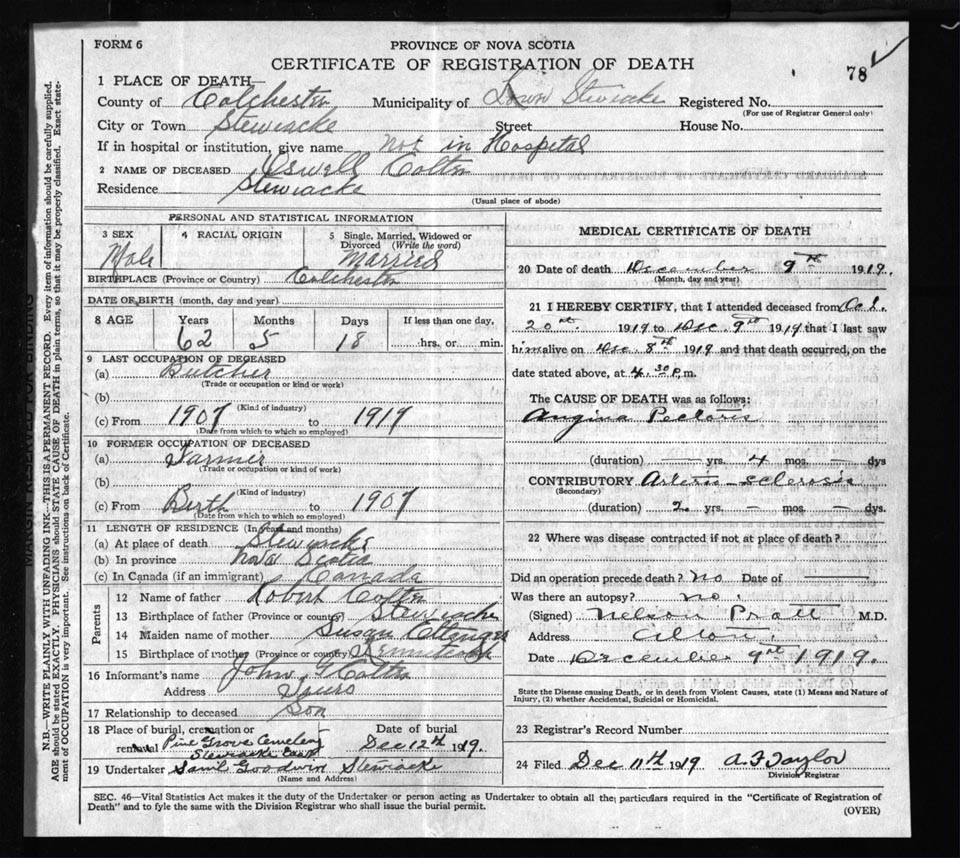 FORM 6
PROVINCE OF NOVA SCOTIA
CERTIFICATE OF REGISTRATION OF DEATH
78
1 PLACE OF DEATH—
County of Colchester Municipality of Town Stewiacke Registered No.
(For use of Registrar General only)
City or Town Stewiacke Street House No.
If in hospital or institution, give name Not in Hospital
2 NAME OF DECEASED Oswell Colter
Residence Stewiacke
(Usual place of abode)
PERSONAL AND STATISTICAL INFORMATION
3 SEX Male
4 RACIAL ORIGIN
5 Single, Married, Widowed or Divorced (Write the word)
Married
BIRTHPLACE (Province or Country) Colchester
DATE OF BIRTH (month, day and year)
8 AGE Years Months Days If less than one day,
62 5 18 hrs. or min.
9 LAST OCCUPATION OF DECEASED
(a) Butcher
(Trade or occupation or kind or work)
(b)
(Kind of industry)
(c) From 1907 to 1919
(Date from which to which so employed)
10 FORMER OCCUPATION OF DECEASED
(a) Farmer
(Trade or occupation or kind of work)
(b)
(Kind of industry)
(c) From Birth to 1907
(Date from which to which so employed)
11 LENGTH OF RESIDENCE (In years and months)
(a) At place of death Stewiacke
(b) In province Nova Scotia
(c) In Canada (if an immigrant) Canada
Parents
12 Name of father Robert Colter
13 Birthplace of father (Province or country) Stewiacke
14 Maiden name of mother Susan
15 Birthplace of mother (Province or country)
16 Informant's name John Colter
Address Truro
17 Relationship to deceased Son
18 Place of burial, cremation or removal Pine Grove Cemetery
Stewiacke East
Date of burial
Dec 12th 1919.
19 Undertaker Saml Goodwin Stewiacke
(Name and Address)
MEDICAL CERTIFICATE OF DEATH
20 Date of death December 9th 1919.
(Month, day and year)
21 I HEREBY CERTIFY, that I attended deceased from Oct.
20th 1919 to Dec. 9th 1919 that I last saw
him alive on Dec. 8th 1919 and that death occurred, on the
date stated above, at 4.30 p.m.
The CAUSE OF DEATH was as follows:
Angina Pectoris
(duration) — yrs. 4 mos. — dys
CONTRIBUTORY Arterio-sclerosis
(Secondary)
(duration) 2 yrs. — mos. — dys.
22 Where was disease contracted if not at place of death?
Did an operation precede death? No Date of
Was there an autopsy? No.
(Signed) Nelson Pratt M.D.
Address
Date December 9th 1919.
State the Disease causing Death, or in death from Violent Causes, state (1) Means and Nature of
Injury, (2) whether Accidental, Suicidal or Homicidal.
23 Registrar's Record Number
24 Filed Dec 11th 1919 A. F. Taylor
Division Registrar
SEC. 46—Vital Statistics Act makes it the duty of the Undertaker or person acting as Undertaker to obtain all the particulars required in the "Certificate of Registration of
Death" and to fyle the same with the Division Registrar who shall issue the burial permit.
(OVER)
MARGIN RESERVED FOR BINDING
N.B.—WRITE PLAINLY WITH UNFADING INK—THIS IS A PERMANENT RECORD. Every item of information should be carefully supplied.
AGE should be stated EXACTLY. PHYSICIANS should STATE CAUSE OF DEATH in plain terms, so that it may be properly classified. Exact state-
ment of OCCUPATION is very important. See instructions on back of Certificate.